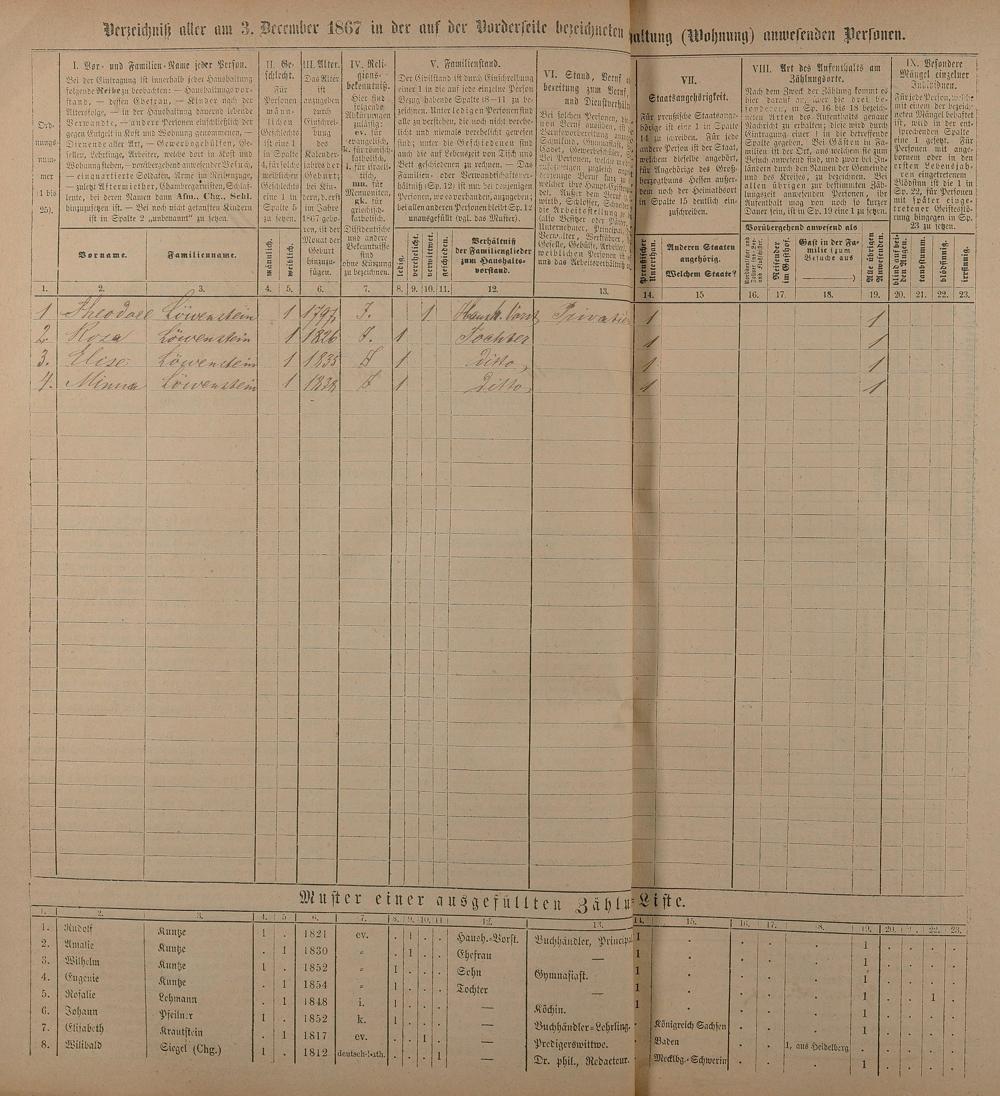 Verzeichniß aller am 3. December 1867 in der auf der Vorderseite bezeichneten haltung (Wohnung) anwesenden Personen.
Ord-
nungs-
num-
mer
(1 bis
25).
I. Vor- und Familien-Name jeder Person.
Bei der Eintragung ist innerhalb jeder Haushaltung
folgende Reihe zu beobachten: – Haushaltungsvor-
stand, – dessen Ehefrau, – Kinder nach der
Altersfolge, – in der Haushaltung dauernd lebende
Verwandte, – andere Personen einschließlich der
gegen Entgelt in Kost und Wohnung genommenen, –
Dienende aller Art, – Gewerbsgehülfen, Ge-
sellen, Lehrlinge, Arbeiter, welche dort in Kost und
Wohnung stehen, – vorübergehend anwesender Besuch,
– einquartierte Soldaten, Arme im Reihenzuge,
– zuletzt Aftermiether, Chambergarnisten, Schlaf-
leute, bei deren Namen dann Afm. Chg. Schl.
hinzuzusetzen ist. – Bei noch nicht getauften Kindern
ist in Spalte 2 „unbenannt" zu setzen.
Vorname. Familienname.
II. Ge-
schlecht.
Für
Personen
männ-
lichen
Geschlechts
ist eine 1
in Spalte
4, für solche
weiblichen
Geschlechts
eine 1 in
Spalte 5
zu setzen.
männlich.
weiblich.
III. Alter.
Das Alter
ist
anzugeben
durch
Einschrei-
bung
des
Kalender-
jahres der
Geburt;
bei Kin-
dern, d. erst
im Jahre
1867 gebo-
ren, ist der
Monat der
Geburt
hinzuzu-
fügen.
IV. Reli-
gions-
bekenntniß.
Hier sind
folgende
Abkürzungen
zulässig:
ev. für
evangelisch,
k. für römisch-
katholisch,
i. für israeli-
tisch,
mn. für
Mennoniten,
gk. für
griechisch-
katholisch.
Dissidentische
und andere
Bekenntnisse
sind
ohne Kürzung
zu bezeichnen.
V. Familienstand.
Der Civilstand ist durch Einschreibung
einer 1 in die auf jede einzelne Person
Bezug habende Spalte (8–11) zu be-
zeichnen. Unter ledigen Personen sind
alle zu verstehen, die noch nicht vereh-
licht und niemals verehelicht gewesen
sind; unter die Geschiedenen sind
auch die auf Lebenszeit von Tisch und
Bett geschiedenen zu rechnen. – Das
Familien- oder Verwandtschaftsver-
hältniß (Sp. 12) ist nur bei denjenigen
Personen, wo es vorhanden, anzugeben;
bei allen anderen Personen bleibt Sp. 12
unausgefüllt (vgl. das Muster).
ledig.
verehelicht.
verwittwet.
geschieden.
Verhältniß
der Familienglieder
zum Haushalts-
vorstand.
VI. Stand, Beruf
bereitung zum Beruf,
und Dienstverhält
VII.
Staatsangehörigkeit.
Für preußische Staatsange-
hörige ist eine 1 in Spalte
14 zu setzen. Für jede
andere Person ist der Staat,
welchem dieselbe angehört,
für Angehörige des Groß-
herzogthums Hessen außer-
dem noch der Heimathsort
in Spalte 15 deutlich ein-
zuschreiben.
Preußischer
Unterthan.
Anderen Staaten
angehörig.
Welchem Staate?
VIII. Art des Aufenthalts am
Zählungsorte.
Nach dem Zweck der Zählung kommt es
hier darauf an, über die drei be-
sonderen, in Sp. 16 bis 18 bezeich-
neten Arten des Aufenthalts genaue
Nachricht zu erhalten; diese wird durch
Eintragung einer 1 in die betreffende
Spalte gegeben. Bei Gästen in Fa-
milien ist der Ort, aus welchem sie zum
Besuch anwesend sind, und zwar bei In-
ländern durch den Namen der Gemeinde
und des Kreises, zu bezeichnen. Bei
allen übrigen zur bestimmten Zäh-
lungszeit anwesenden Personen, ihr
Aufenthalt mag von noch so kurzer
Dauer sein, ist in Sp. 19 eine 1 zu setzen.
Vorübergehend anwesend als
Reisender
im Gasthof.
Gast in der Fa-
milie (zum
Besuche aus
)
Alle übrigen
Anwesenden.
IX. Besondere
Mängel einzelner
Individuen.
Für jede Person, welche
mit einem der bezeich-
neten Mängel behaftet
ist, wird in der ent-
sprechenden Spalte
eine 1 gesetzt. Für
Personen mit ange-
bornem oder in den
ersten Lebensjah-
ren eingetretenem
Blödsinn ist die 1 in
Sp. 22, für Personen
mit später einge-
tretener Geistesstö-
rung hingegen in Sp.
23 zu setzen.
blind auf bei-
den Augen.
taubstumm.
blödsinnig.
irrsinnig.
1. 2. 3. 4. 5. 6. 7. 8. 9. 10. 11. 12. 13. 14. 15 16. 17. 18. 19. 20. 21. 22. 23.
1 Löwenstein 1 1797 J. 1 Haush. Vorst. 1 1
2. Rosa Löwenstein 1 1826 J. 1 Tochter 1 1
3. Elise Löwenstein 1 1835 J 1 Ditto, 1 1
4. Minna Löwenstein 1 1838 J 1 Ditto, 1 1
Muster einer ausgefüllten Zähl Liste.
1. 2. 3. 4. 5. 6. 7. 8. 9. 10. 11 12. 13. 14. 15. 16. 17. 18. 19. 20. 21. 22. 23.
1. Rudolf Kuntze 1 . 1821 ev. . 1 . . Haush.-Vorst. Buchhändler, Principa 1 . . . . 1 . . . .
2. Amalie Kuntze . 1 1830 „ . 1 . . Ehefrau — 1 . . . . 1 . . . .
3. Wilhelm Kuntze 1 . 1852 „ 1 . . . Sohn Gymnasiast. 1 . . . . 1 . . . .
4. Eugenie Kuntze . 1 1854 „ 1 . . . Tochter — 1 . . . . 1 . . 1 .
5. Rosalie Lehmann . 1 1848 i. 1 . . . — Köchin. 1 . . . . 1 . . . .
6. Johann Pfeilner 1 . 1852 k. 1 . . . — Buchhändler-Lehrling. . Königreich Sachsen . . . 1 . . . .
7. Elisabeth Krautstein . 1 1817 ev. . . 1 . — Predigerswittwe. . Baden . . 1, aus Heidelberg . . . . .
8. Wilibald Siegel (Chg.) 1 . 1812 deutsch-kath. . . . 1 — Dr. phil., Redacteur. . Mecklbg.-Schwerin . . . 1 . . . .